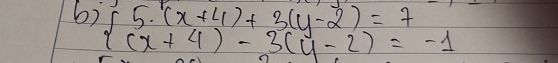 b) { 5.(x+4)+3(y-2)=7
(x+4)-3(y-2)=-1